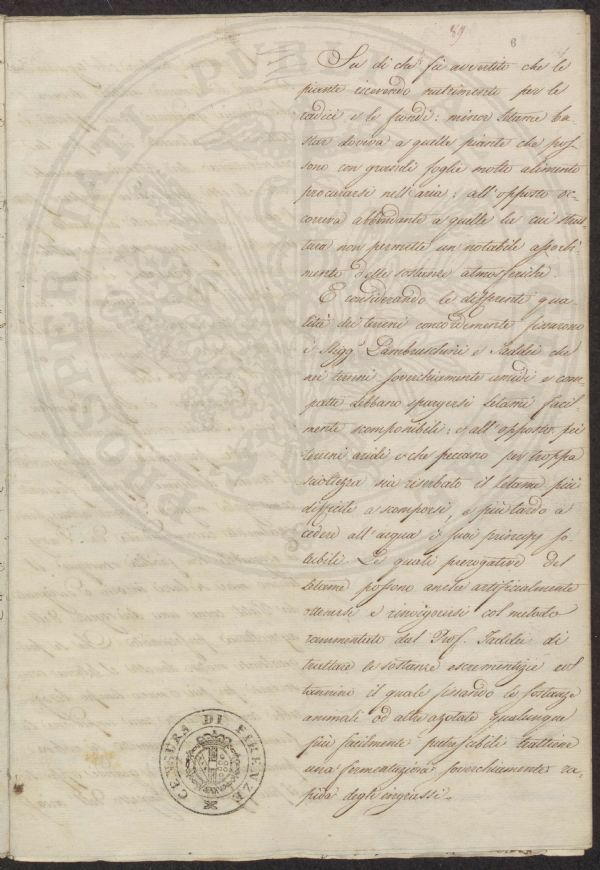 89
8
Su di che fù avvertito che le
piante ricevendo nutrimento per le
radici e le frondi: minor letame ba-
star doveva a quelle piante che pos-
sono con grandi foglie molto alimento
procurarsi nell'aria: all'opposto oc-
correva abbondante a quelle la cui strut-
tura non permette un notabile assorbi-
mento delle sostanze atmosferiche.
E considerando le differenti qua-
lità dei terreni concordemente fissarono
i Sigg.ri Lambruschini e Taddei che
nei terreni soverchiamente umidi e com-
patti debbano spargersi letami facil-
mente scomponibili: e all'opposto pei
terreni aridi e che peccano per troppa
scioltezza sia riserbato il letame più
difficile a scomporsi, e più tardo a
cedere all'acqua i suoi principj so-
lubili. Le quali prerogative del
letame possono anche artificialmente
ottenersi e rinvigorirsi col metodo
rammentato dal Prof. Taddei di
trattare le sostanze escrementizie col
tannino il quale fissando le sostanze
animali od altre azotate qualunque
più facilmente putrefacibili trattiene
una fermentazione soverchiamente ra-
pida degli ingrassi.
CENSURA DI FIRENZE
PROSPERITATI PUBLICAE